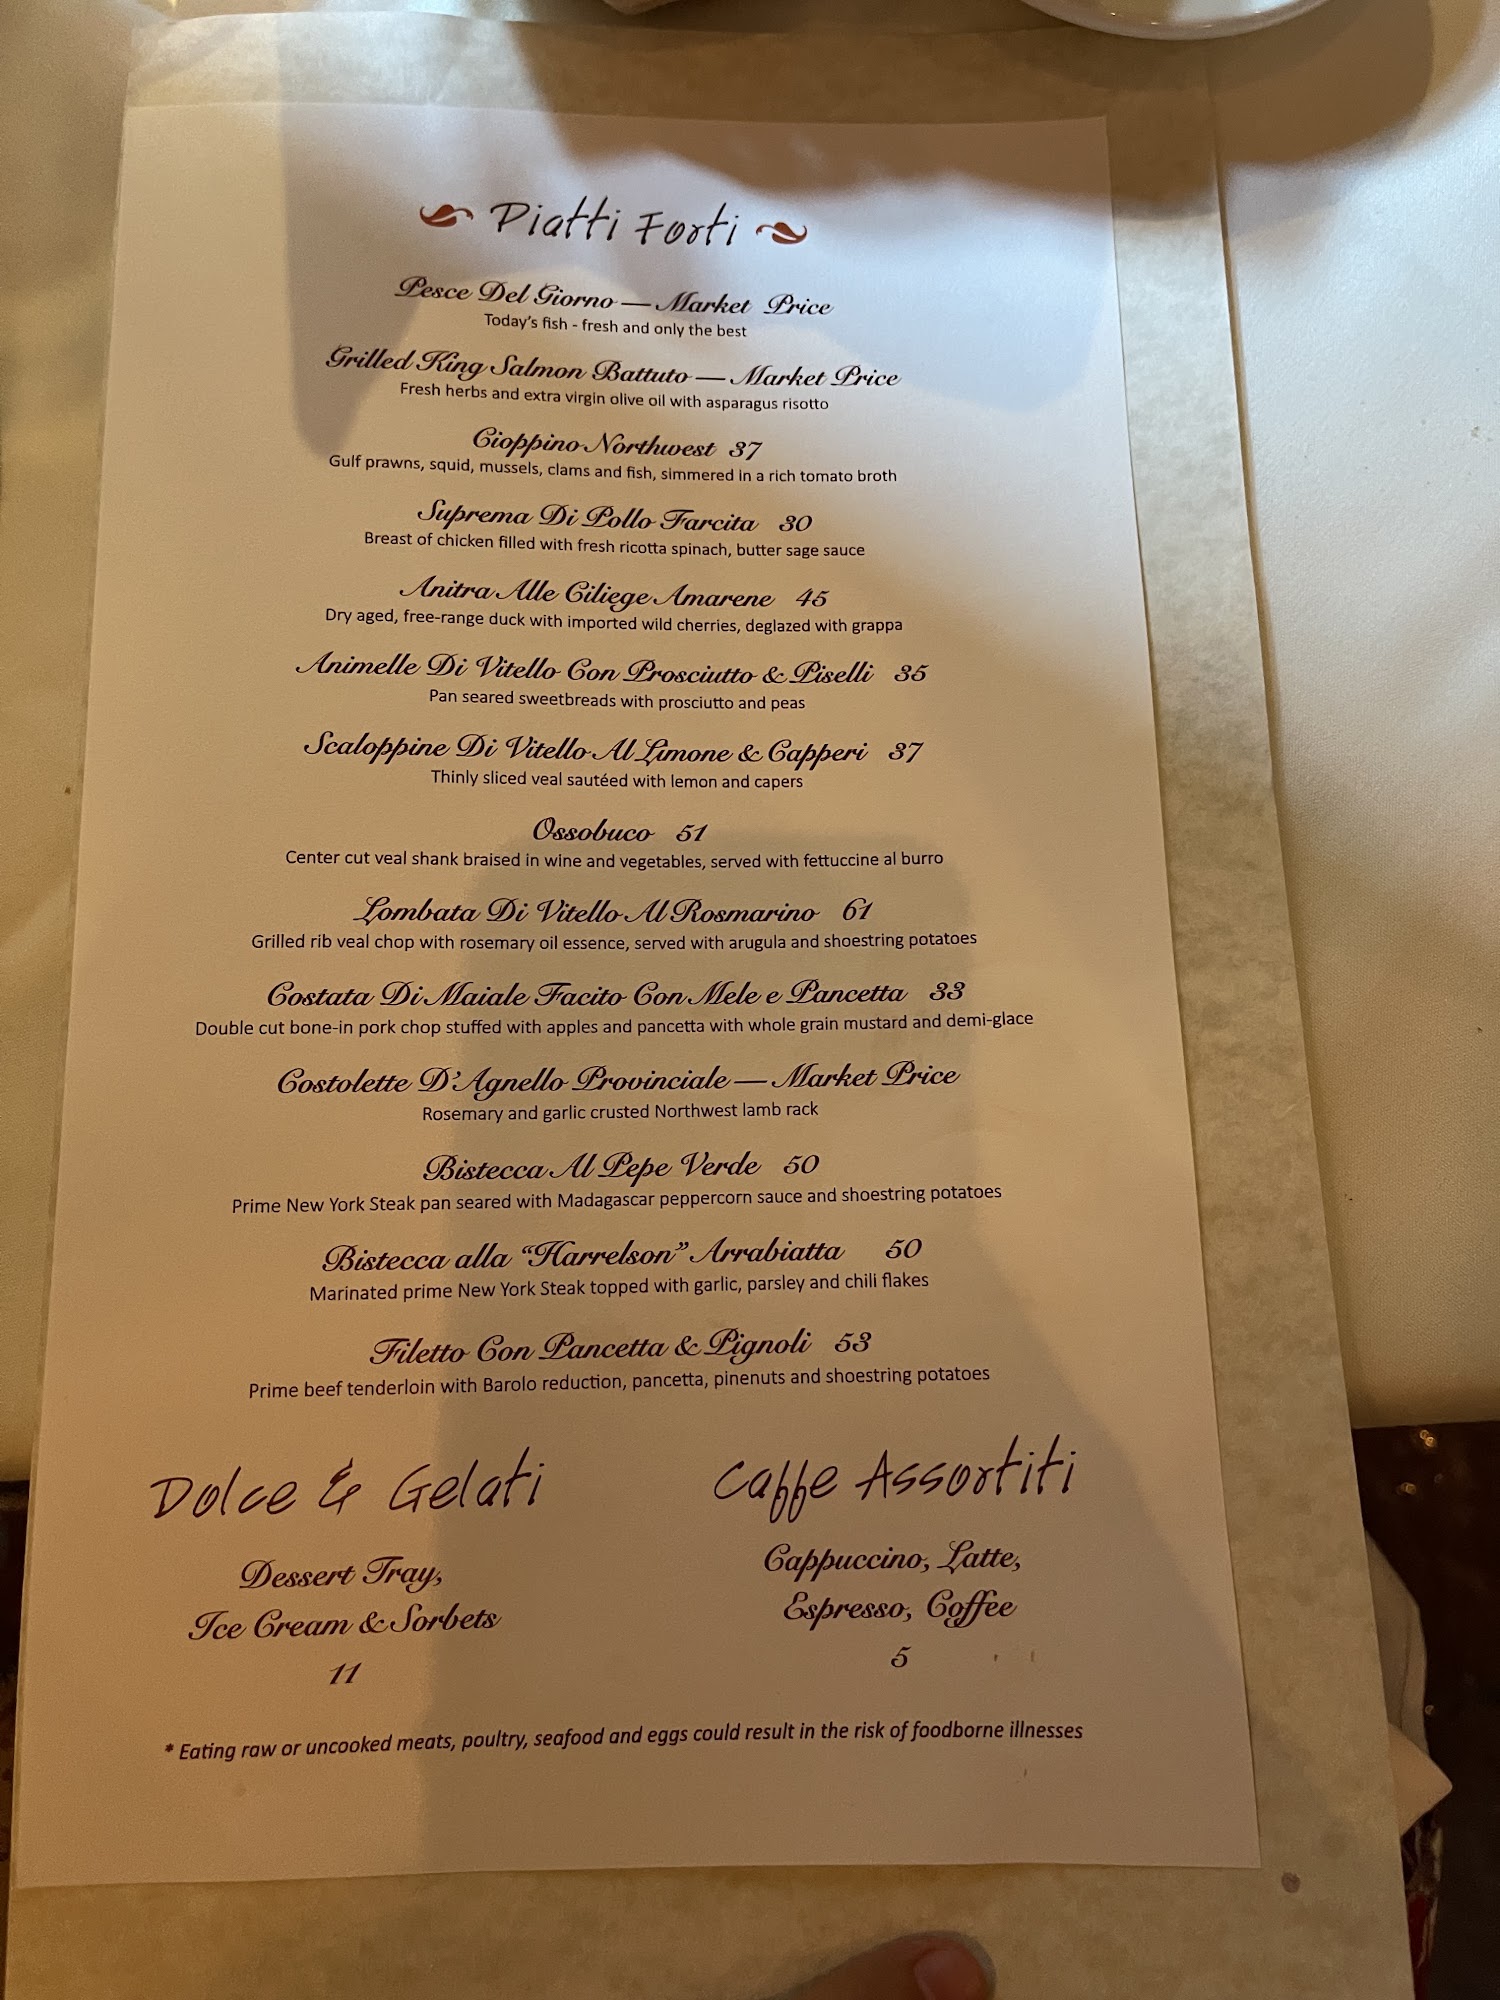 Piatti Forti
Pesce Del Giorno — Market Price
Today's fish - fresh and only the best
Grilled King Salmon Battuto — Market Price
Fresh herbs and extra virgin olive oil with asparagus risotto
Cioppino Northwest 37
Gulf prawns, squid, mussels, clams and fish, simmered in a rich tomato broth
Suprema Di Pollo Farcita 30
Breast of chicken filled with fresh ricotta spinach, butter sage sauce
Anitra Alle Ciliege Amarene 45
Dry aged, free-range duck with imported wild cherries, deglazed with grappa
Animelle Di Vitello Con Prosciutto & Piselli 35
Pan seared sweetbreads with prosciutto and peas
Scaloppine Di Vitello Al Limone & Capperi 37
Thinly sliced veal sautéed with lemon and capers
Ossobuco 51
Center cut veal shank braised in wine and vegetables, served with fettuccine al burro
Lombata Di Vitello Al Rosmarino 61
Grilled rib veal chop with rosemary oil essence, served with arugula and shoestring potatoes
Costata Di Maiale Facito Con Mele e Pancetta 33
Double cut bone-in pork chop stuffed with apples and pancetta with whole grain mustard and demi-glace
Costolette D'Agnello Provinciale — Market Price
Rosemary and garlic crusted Northwest lamb rack
Bistecca Al Pepe Verde 50
Prime New York Steak pan seared with Madagascar peppercorn sauce and shoestring potatoes
Bistecca alla "Harrelson" Arrabiatta 50
Marinated prime New York Steak topped with garlic, parsley and chili flakes
Filetto Con Pancetta & Pignoli 53
Prime beef tenderloin with Barolo reduction, pancetta, pinenuts and shoestring potatoes
Dolce & Gelati
Dessert Tray,
Ice Cream & Sorbets
11
Caffe Assortiti
Cappuccino, Latte,
Espresso, Coffee
5
* Eating raw or uncooked meats, poultry, seafood and eggs could result in the risk of foodborne illnesses